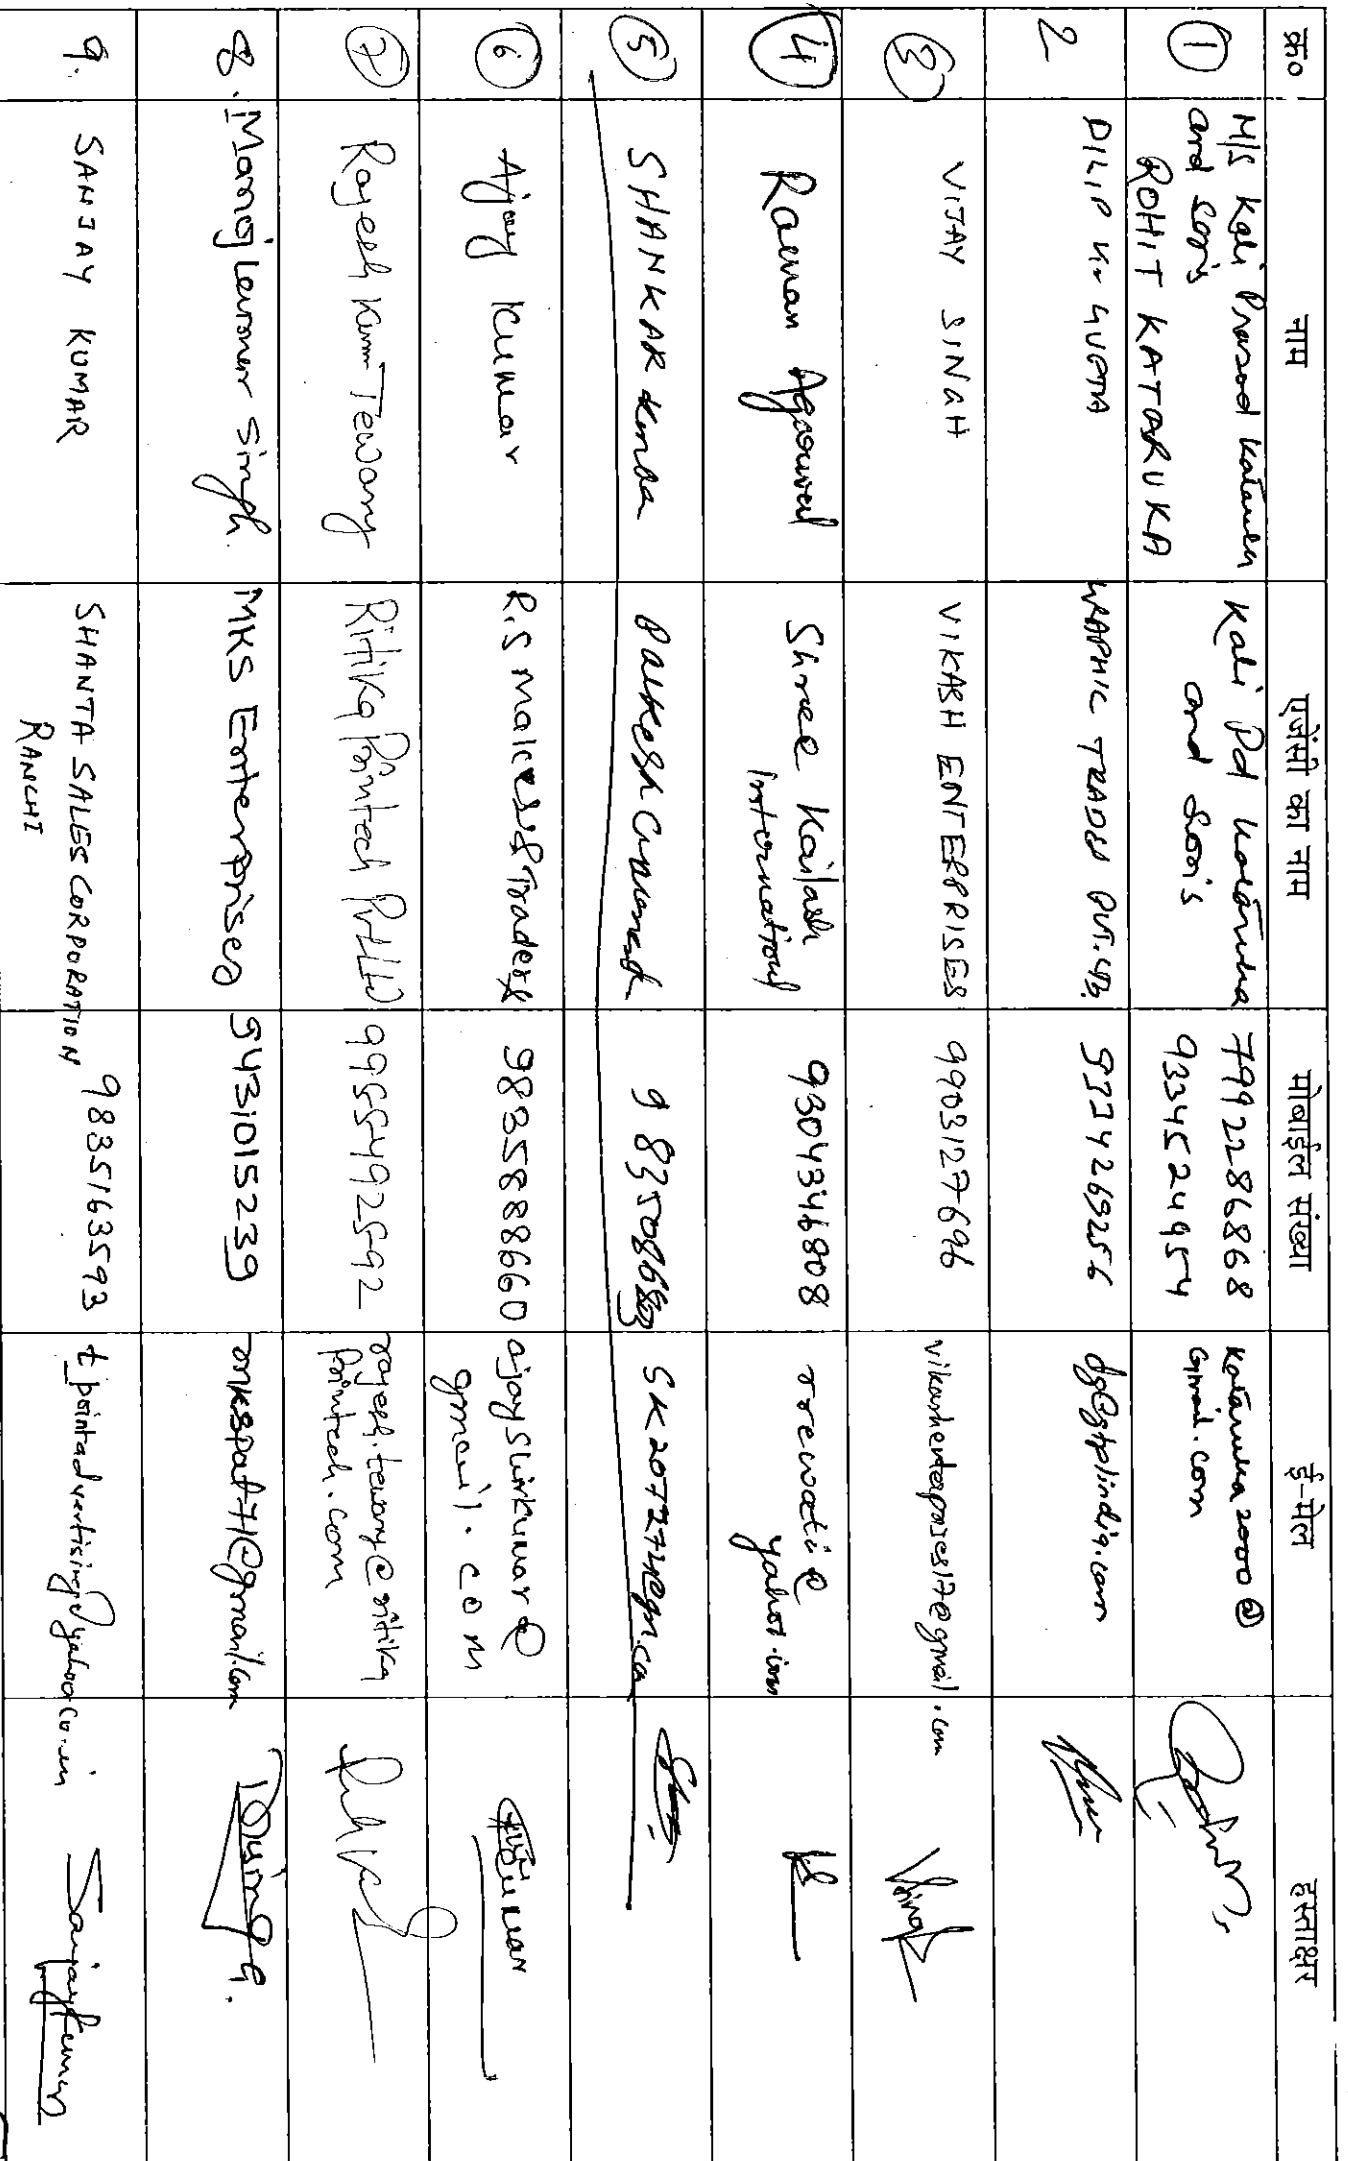 क्र०
नाम
एजेंसी का नाम
मोबाईल संख्या
ई-मेल
हस्ताक्षर
1
M/S Kali Prasad
and Son's
ROHIT KATARUKA
Kali Pd Kataruka
and Son's
7992286868
9334524954
kataruka2000@
Gmail.com
2
DILIP Kr GUPTA
GRAPHIC TRADES PVT. LTD.
dg@gtplindia.com
3
VIJAY SINGH
VIKASH ENTERPRISES
9903127696
vikashenterprises17@gmail.com
Vsingh
4
Raman Agarwal
Shree Kailash
International
9304346808
rrewati@
yahoo.in
5
SHANKAR
6
Ajay Kumar
R.S Makers & Traders
9835888660
ajayslirkumar@
gmail.com
7
Rajesh Kumar Tewary
Ritika Printech Pvt Ltd
9955492592
rajesh.tewary@ritika
printech.com
8.
Manoj Kumar Singh.
MKS Enterprises
9431015239
mkspat71@gmail.com
9.
SANJAY KUMAR
SHANTA SALES CORPORATION
RANCHI
9835163593
t_pointadvertising@yahoo.co.in
Sanjay Kumar